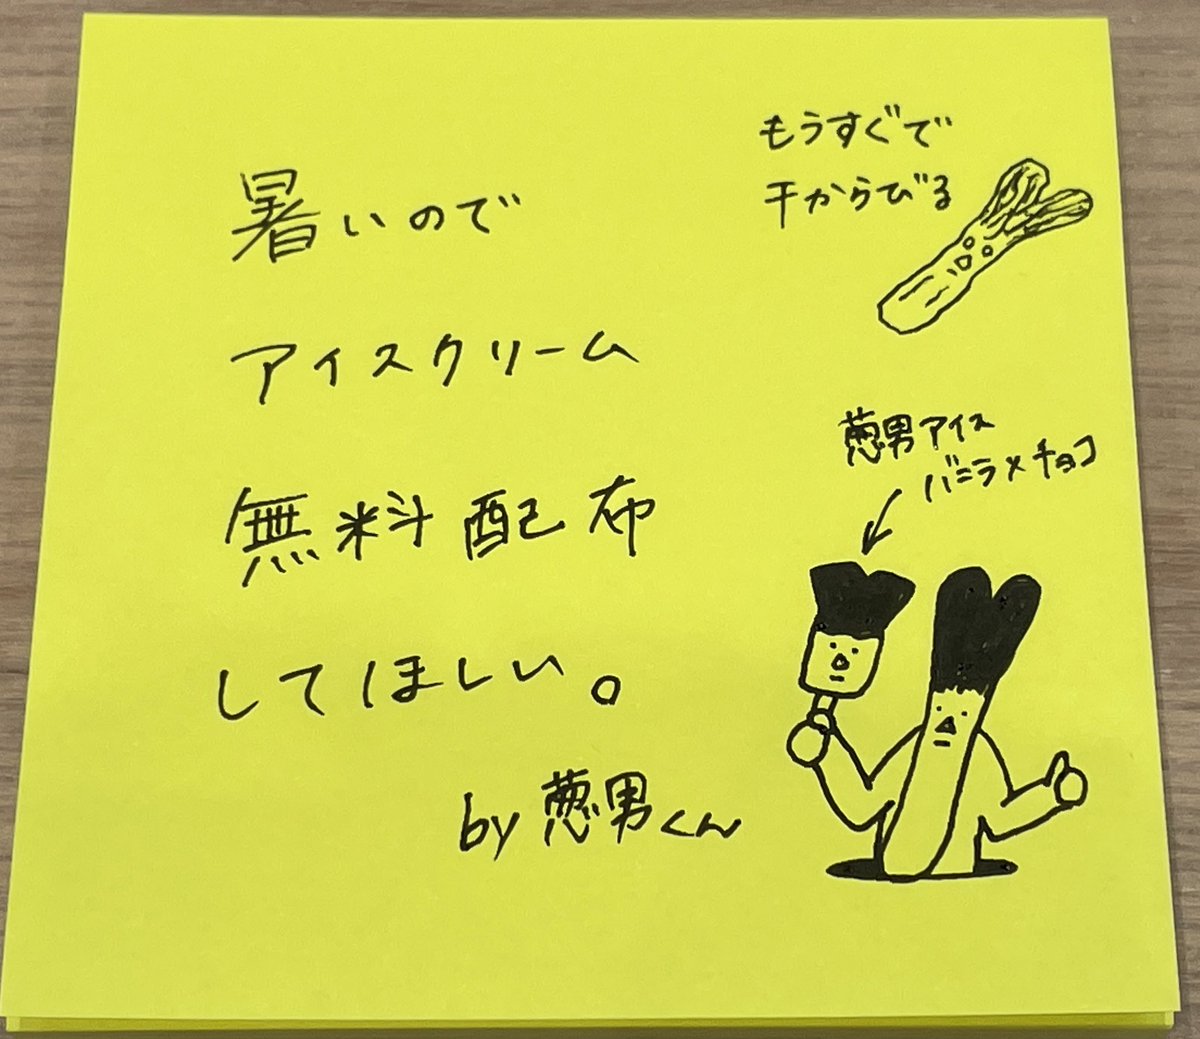 暑いので
アイスクリーム
無料配布
してほしい。
by 葱男くん
もうすぐで
干からびる
葱男アイス
バニラ×チョコ